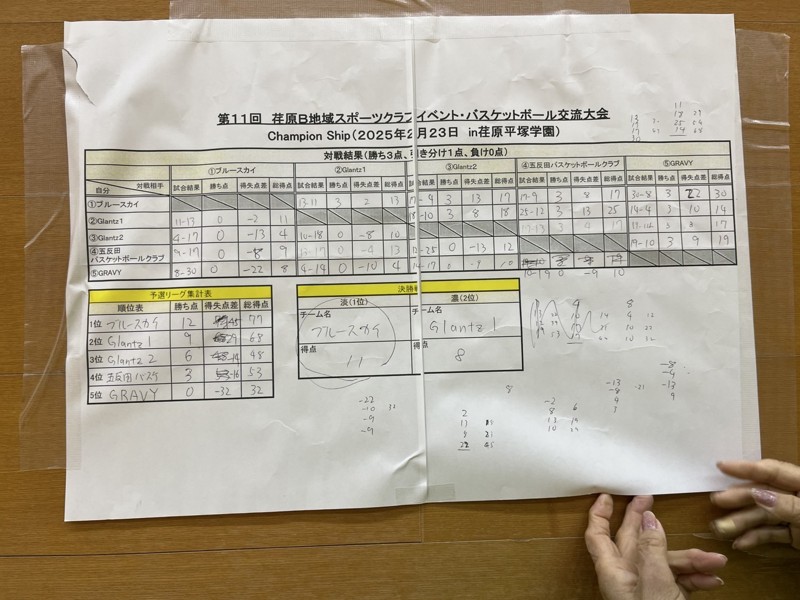 第11回 荏原B地域スポーツクラブイベント・バスケットボール交流大会
Champion Ship(2025年2月23日 in荏原平塚学園)
対戦結果(勝ち3点、引き分け1点、負け0点)
対戦相手 ①ブルースカイ ②Glantz1 ③Glantz2 ④五反田バスケットボールクラブ ⑤GRAVY
自分 試合結果 勝ち点 得失点差 総得点 試合結果 勝ち点 得失点差 総得点 試合結果 勝ち点 得失点差 総得点 試合結果 勝ち点 得失点差 総得点 試合結果 勝ち点 得失点差 総得点
①ブルースカイ 13-11 3 2 13 17-4 3 13 17 17-9 3 8 17 30-8 3 22 30
②Glantz1 11-13 0 -2 11 18-10 3 8 18 25-12 3 13 25 14-4 3 10 14
③Glantz2 4-17 0 -13 4 10-18 0 -8 10 17-13 3 4 17 17-14 3 3 17
④五反田バスケットボールクラブ 9-17 0 -8 9 13-17 0 -4 13 12-25 0 -13 12 19-10 3 9 19
⑤GRAVY 8-30 0 -22 8 4-14 0 -10 4 10-19 0 -9 10
予選リーグ集計表
順位表 勝ち点 得失点差 総得点
1位 ブルースカイ 12 45 77
2位 Glantz1 9 29 68
3位 Glantz2 6 -14 48
4位 五反田バスケ 3 -16 53
5位 GRAVY 0 -32 32
決勝
淡(1位) 濃(2位)
チーム名 ブルースカイ チーム名 Glantz1
得点 11 8